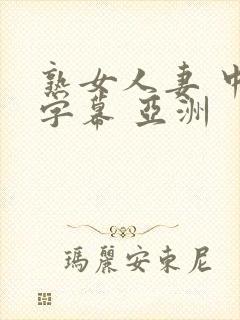 熟女人妻 中
字幕 亞洲
瑪麗安東尼